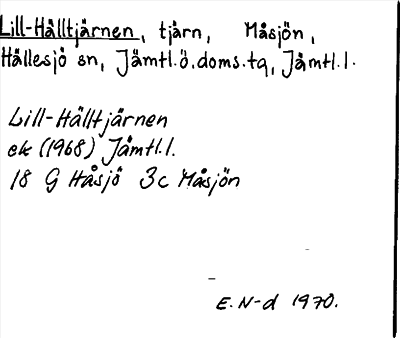 Lill-Hälltjärnen, tjärn, Måsjön,
Hällesjö sn, Jämtl.ö.doms.tg, Jämtl.l.
Lill-Hälltjärnen
ek (1968) Jämtl.l.
18 G Håsjö 3c Måsjön
E. N-d 1970.